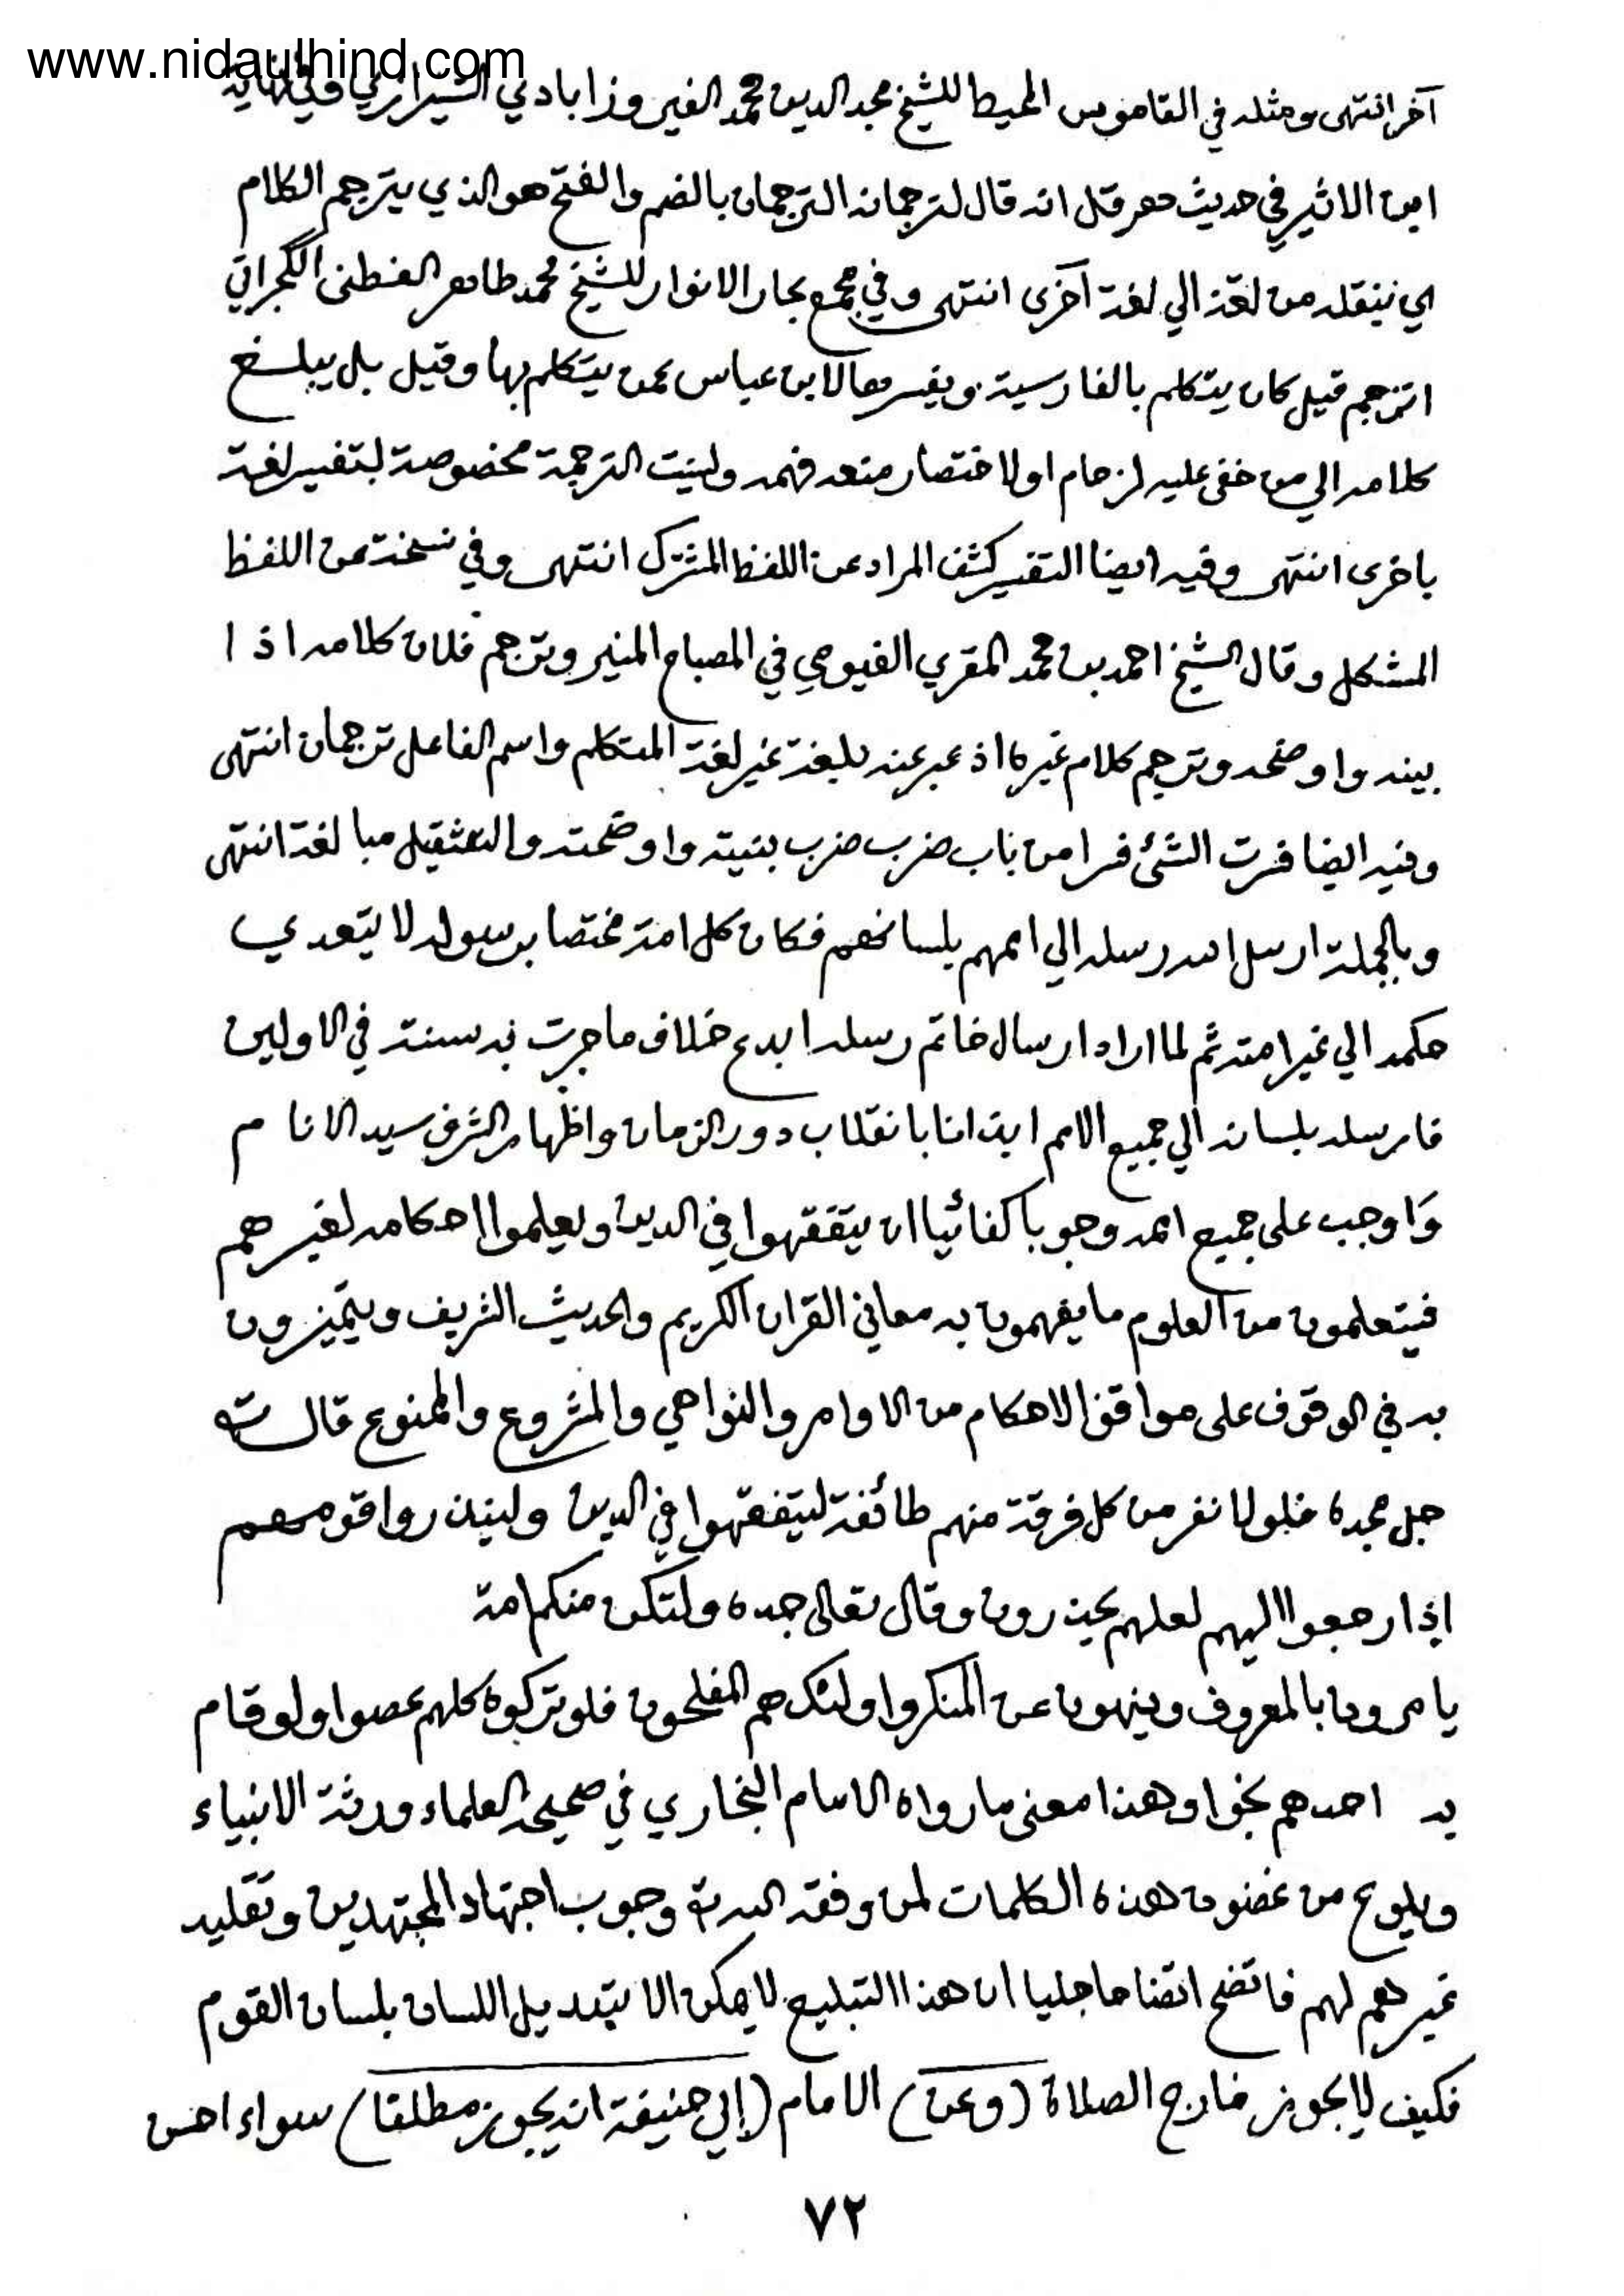 www.nidaulhind.com
آخر انتهى ومثله في القاموس المحيط للشيخ مجد الدين محمد الفيروزابادي الشيرازي وفي نهاية
ابن الاثير في حديث هرقل انه قال لترجمانه الترجمان بالضم والفتح هو الذي يترجم الكلام
اي ينقله من لغة الي لغة آخرى انتهى وفي مجمع بحار الانوار للشيخ محمد طاهر الفطنى الگجراتي
اترجم قيل كان يتكلم بالفارسية ويفسرها لابن عباس عمن يتكلم بها وقيل بل يبلغ
كلامه الي من خفى عليه لزحام او لاختصار منعه فهمه وليست الترجمة مخصوصة بتفسير لغة
باخرى انتهى وفيه ايضا التفسير كشف المراد عن اللفظ المشترك انتهى وفي نسخة عن اللفظ
المشكل وقال الشيخ احمد بن محمد المقري الفيومي في المصباح المنير وترجم فلان كلامه اذا
بينه واوضحه وترجم كلام غيره اذ عبر عنه بلغة غير لغة المتكلم واسم الفاعل ترجمان انتهى
وفيه ايضا فسرت الشئ فسرا من باب ضرب ضرب بنيته واوضحته والتثقيل مبالغة انتهى
وبالجملة ارسل الله رسله الي اممهم بلسانهم فكان كل امة مختصا برسوله لا يتعدي
حكمه الي غير امته ثم لما اراد ارسال خاتم رسله ابدع خلاف ما جرت به سنته في الاولين
فارسله بلسانه الي جميع الامم ايذانا بانقلاب دور الزمان واظهار الشرف سيد الانام
واوجب على جميع اممه وجوبا كفائيا ان يتفقهوا في الدين ويعلموا احكامه لغيرهم
فيتعلمون من العلوم ما يفهمون به معاني القران الكريم والحديث الشريف ويتميزون
به في الوقوف على مواقف الاحكام من الاوامر والنواهي والمشروع والممنوع قال
جل مجده فلولا نفر من كل فرقة منهم طائفة ليتفقهوا في الدين ولينذروا قومهم
إذا رجعوا اليهم لعلهم يحذرون وقال تعالى جده ولتكن منكم امة
يامرون بالمعروف وينهون عن المنكر واولئك هم المفلحون فلو تركوه كلهم عصوا ولو قام
به احدهم نجوا وهذا معنى ما رواه الامام البخاري في صحيحه العلماء ورثة الانبياء
ويلوح من غضون هذه الكلمات لمن وفقه الله وجوب اجتهاد المجتهدين وتقليد
غيرهم لهم فاتضح اتضاحا جليا ان هذا التبليغ لا يمكن الا بتبديل اللسان بلسان القوم
فكيف لا يجوز خارج الصلاة (وعن) الامام (إبي حنيفة انه يجوز مطلقا) سواء احسن
٧٢